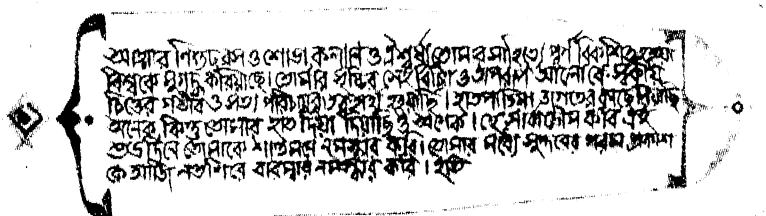 আত্মার নিগূঢ় রস ও শোভা কল্যাণ ও ঐশ্বর্য্য তোমার সাহিত্যে পূর্ণ বিকশিত হইয়া
বিশ্বকে মুগ্ধ করিয়াছে। তোমার সৃষ্টির সেই বিচিত্র ও অপরূপ আলোকে স্বকীয়
চিত্তের গভীর ও সত্য পরিচয়ে কৃতার্থ হইয়াছি। হাত পাতিয়া জগতের কাছে নিয়াছি
অনেক, কিন্তু তোমার হাত দিয়া দিয়াছিও অনেক। হে সার্ব্বভৌম কবি এই
শুভদিনে তোমাকে শান্তমনে নমস্কার করি। তোমার মধ্যে সুন্দরের পরম প্রকাশ
কে আজি নতশিরে বারম্বার নমস্কার করি। ইতি